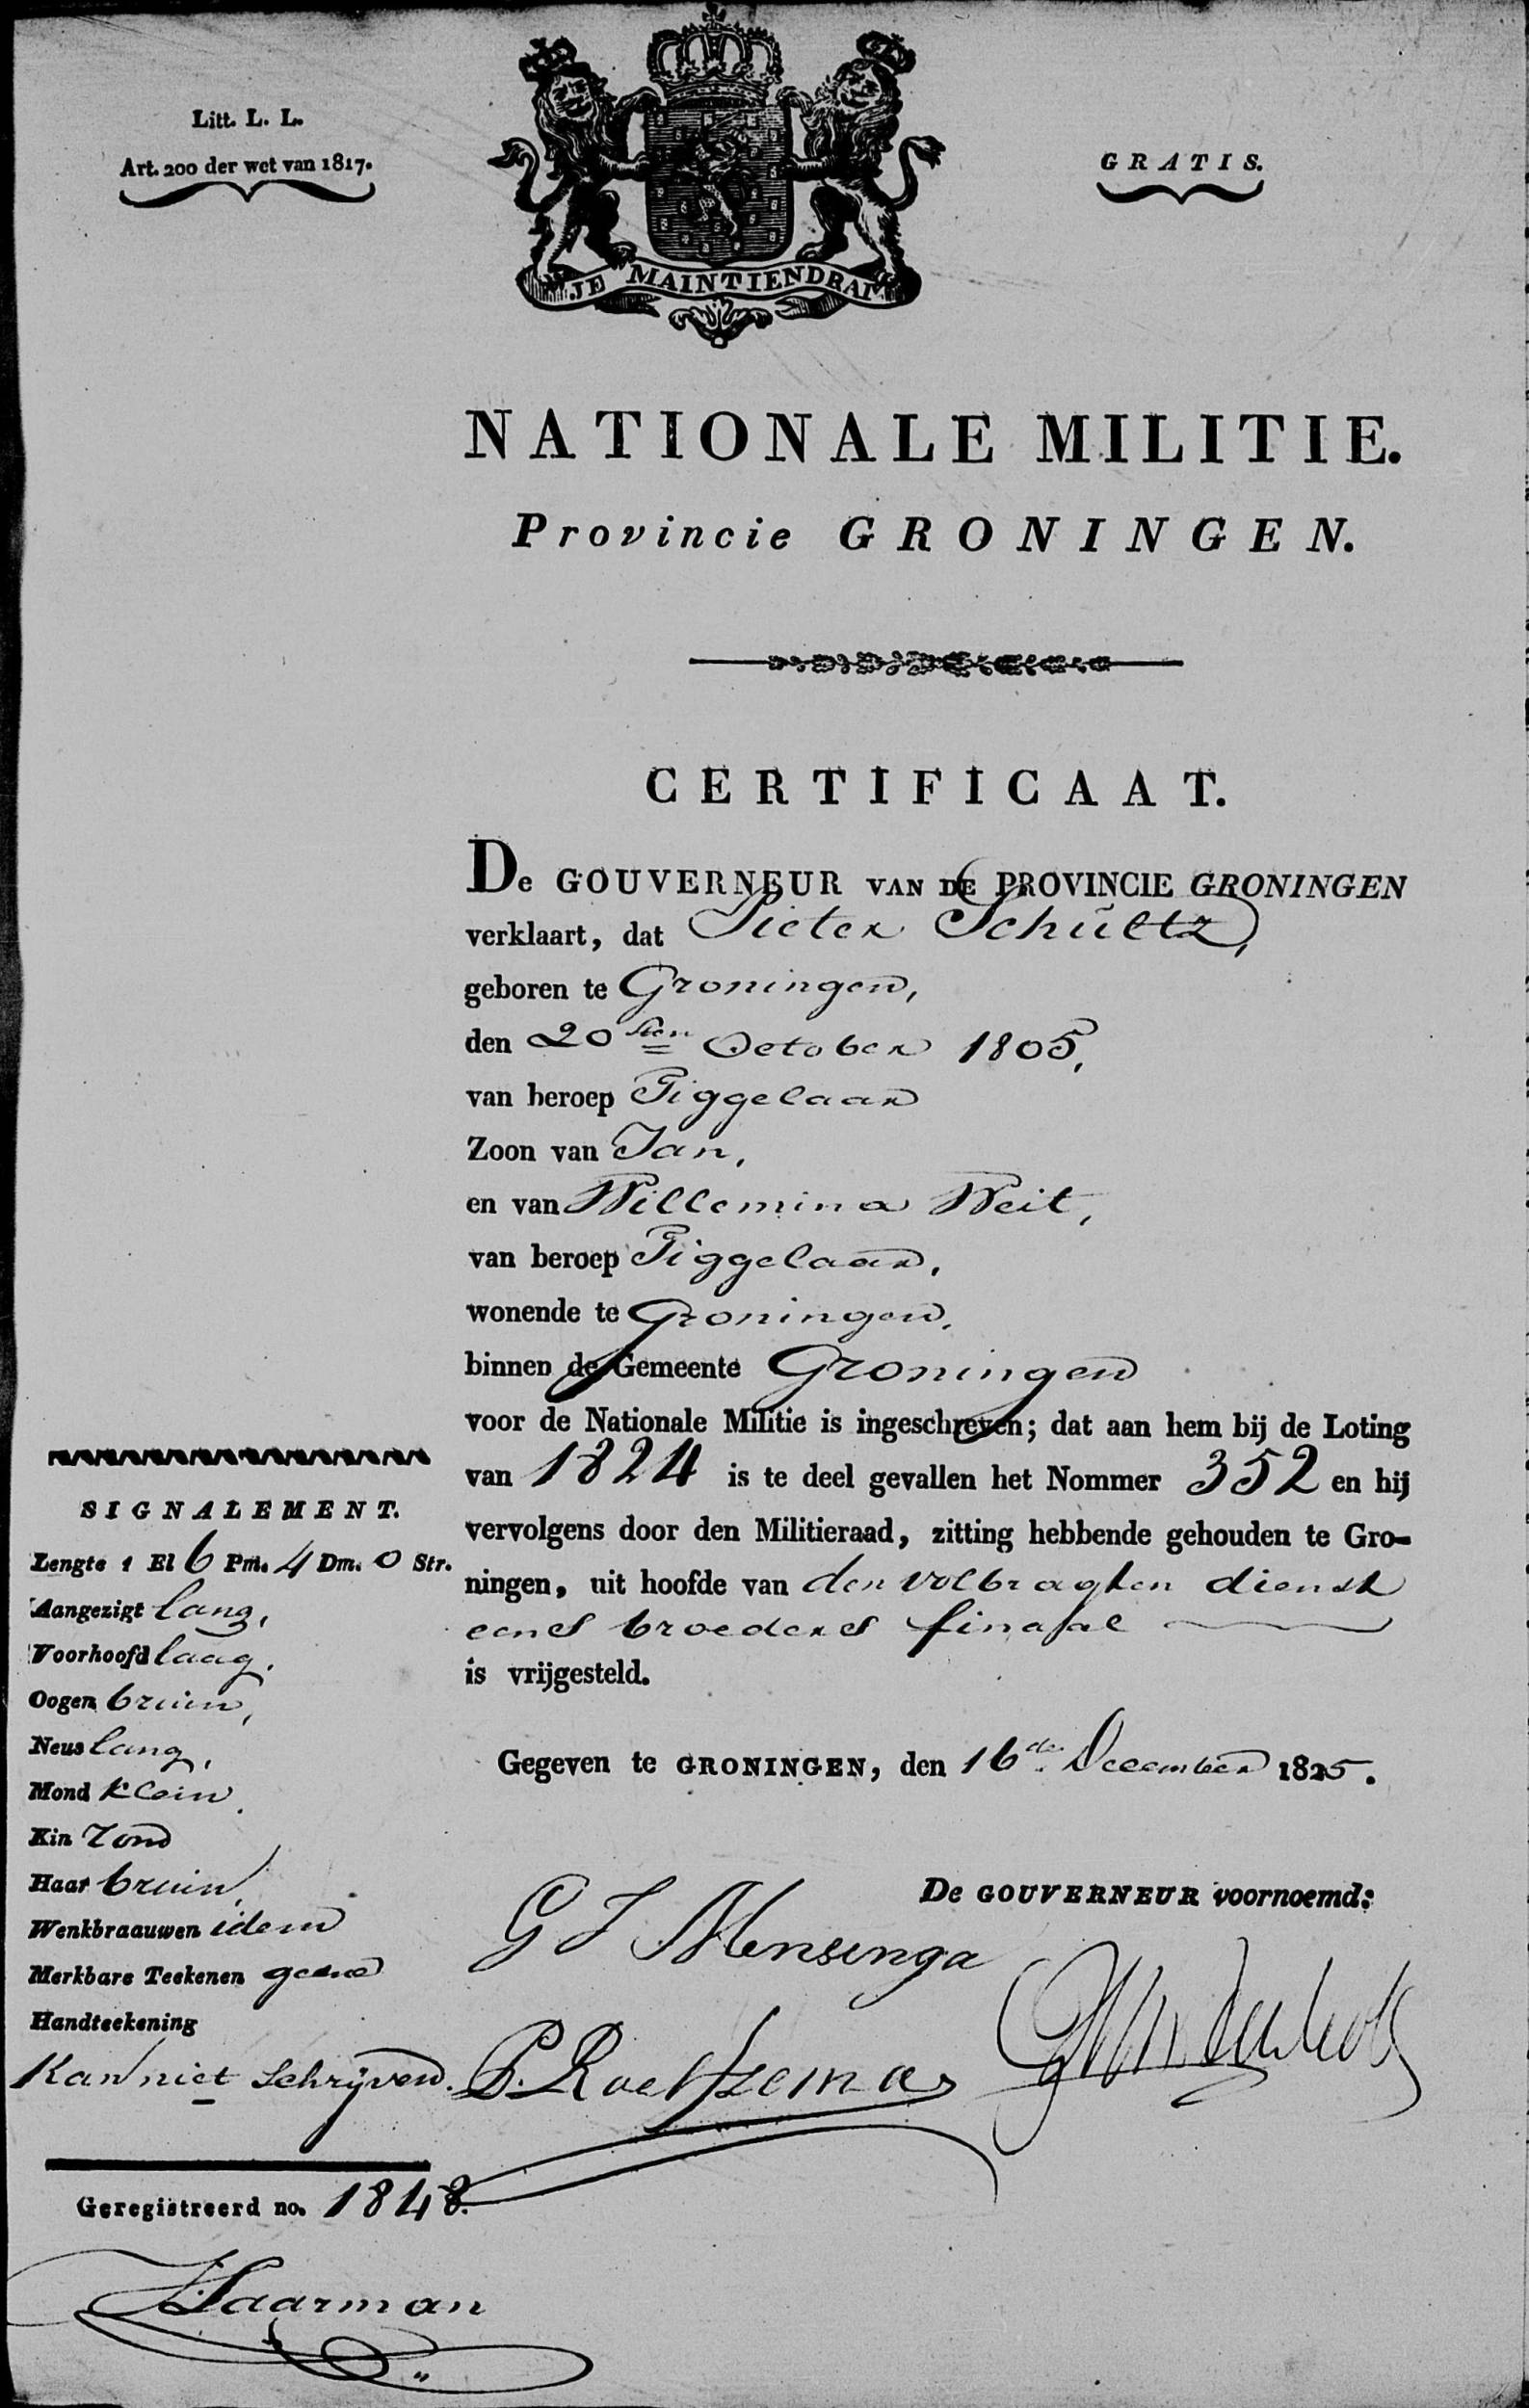 Litt. L. L.
Art. 200 der wet van 1817.
GRATIS.
JE MAINTIENDRAI
NATIONALE MILITIE.
Provincie GRONINGEN.
CERTIFICAAT.
De GOUVERNEUR VAN DE PROVINCIE GRONINGEN
verklaart, dat Pieter Schultz,
geboren te Groningen,
den 20sten October 1805,
van beroep Tiggelaar
Zoon van Jan,
en van Willemina Weit,
van beroep Tiggelaar,
wonende te Groningen,
binnen de Gemeente Groningen
voor de Nationale Militie is ingeschreven; dat aan hem bij de Loting
van 1824 is te deel gevallen het Nommer 352 en hij
vervolgens door den Militieraad, zitting hebbende gehouden te Gro-
ningen, uit hoofde van den volbragten dienst
eenes broeders finaal
is vrijgesteld.
Gegeven te GRONINGEN, den 16de December 1825.
De GOUVERNEUR voornoemd:
G J Mensinga
P. Roelfzema
SIGNALEMENT.
Lengte 1 El 6 Pm. 4 Dm. 0 Str.
Aangezigt lang,
Voorhoofd laag,
Oogen bruin,
Neus lang,
Mond klein,
Kin rond
Haar bruin,
Wenkbraauwen idem
Merkbare Teekenen geene
Handteekening
Kan niet Schrijven.
Geregistreerd no. 1848.
Haarman